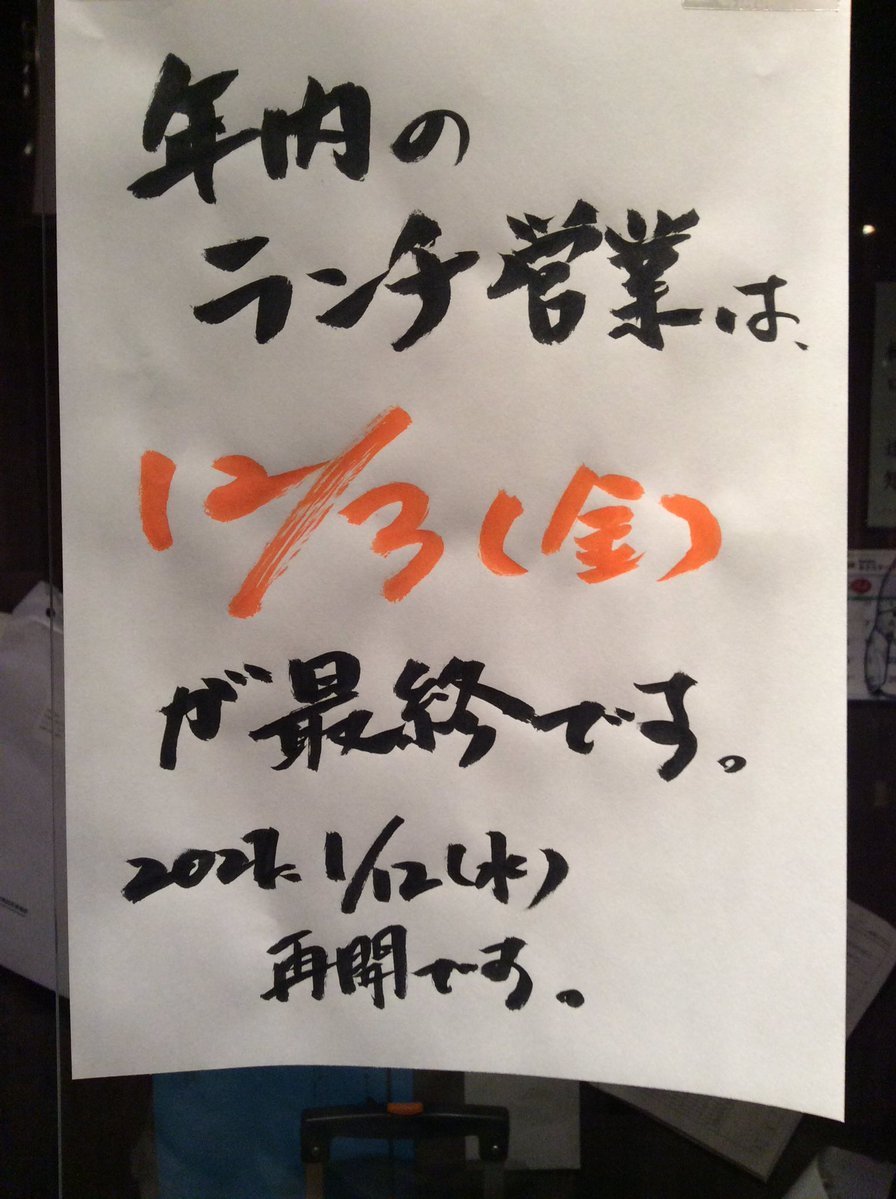 年内の
ランチ営業は、
12/3(金)
が最終です。
2022. 1/12(水)
再開です。